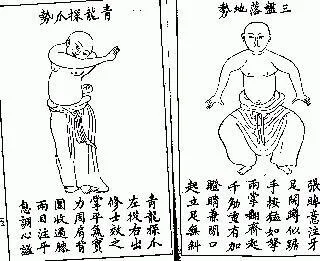 三盤落地勢
張眸意注牙
足開蹲似踞
手按猛如拏
兩掌翻齊起
千觔重有加
瞪睛兼閉口
起立足無斜
青龍探爪勢
青龍探爪
左從右出
修士效之
掌平氣實
力周肩背
圍收過膝
兩目注平
息調心謐